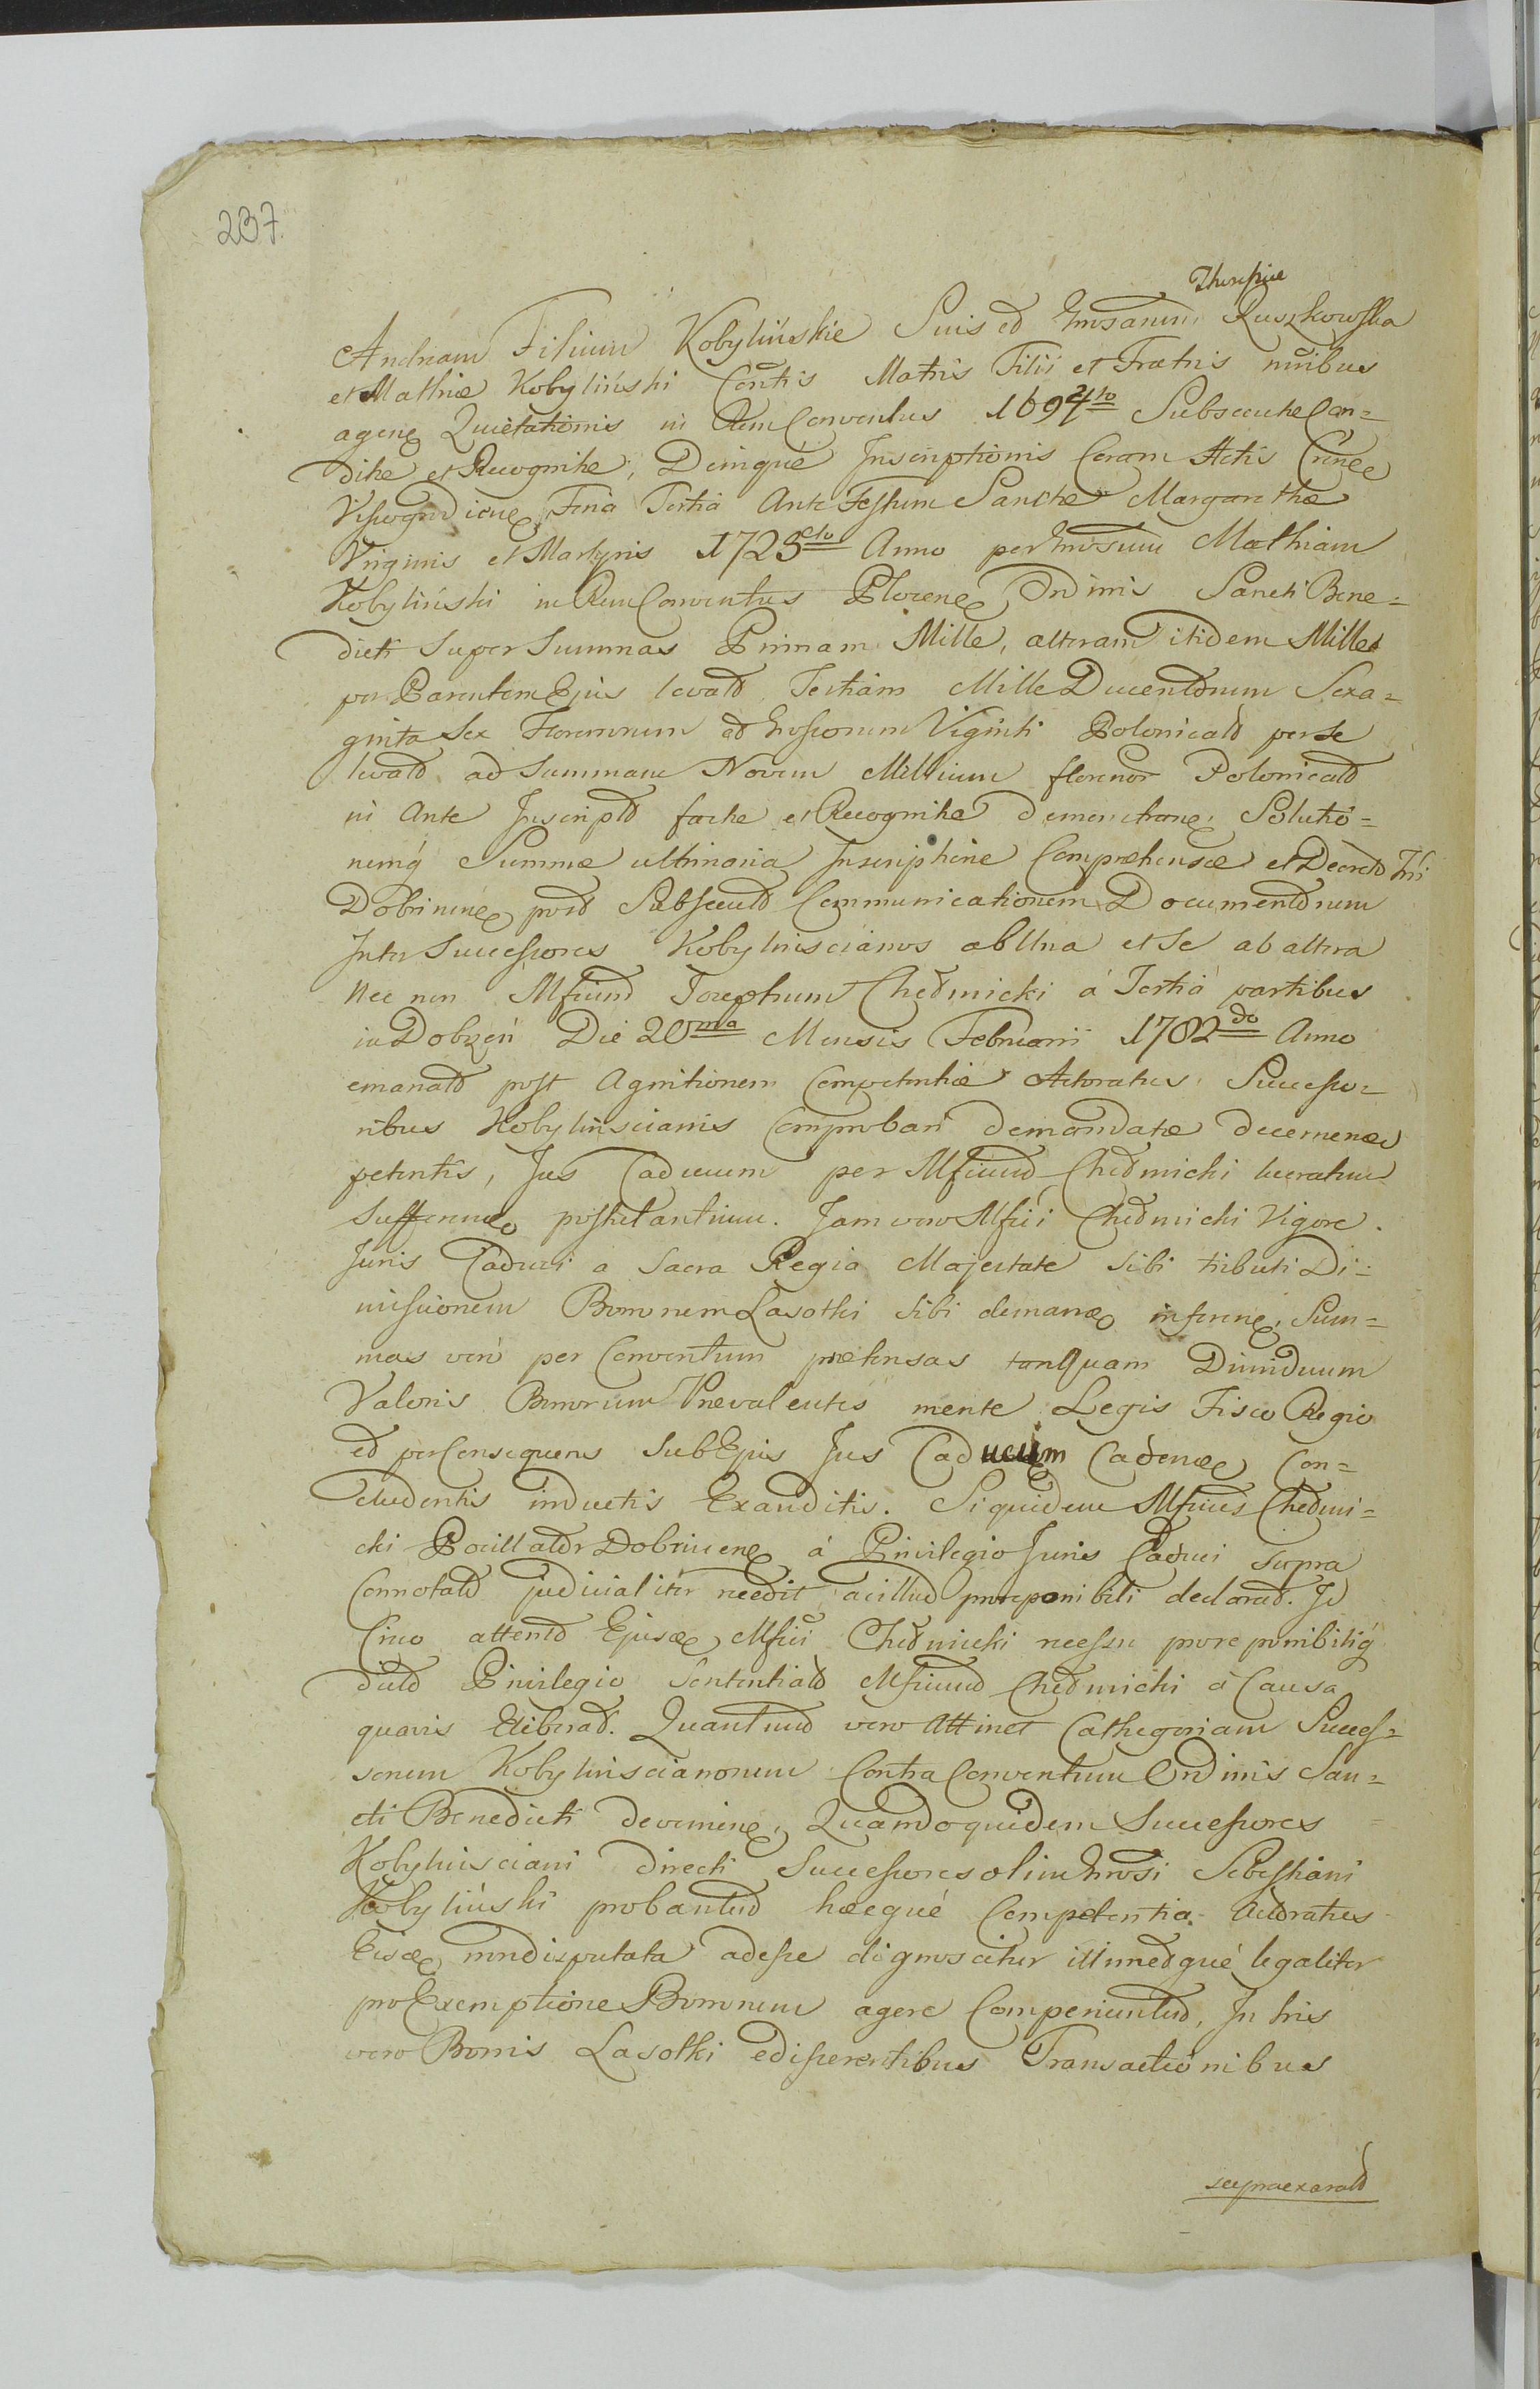 237.
Theresiae
Andream Filium Kobylińskie Suis et Gnrsarum Ruszkowska
et Mathiæ Kobyliński Contis Matris Filii et Fratris nnibus
agen Quietationis in Rem Conventus 1694to Subsecutæ Con=
ditæ et Recognitæ, Denique Inscriptionis Coram Actis
Feria Tertia Ante Festum Sanctæ Margarethæ
Virginis et Martyris 1725to Anno per Mathiam
Kobyliński in Rem Conventus Plocen Ordinis Sancti Bene=
dicti super Summas Primam Mille, alteram itidem Mille
per Parentem Ejus levat Tertiam Mille Ducentorum Sexa=
ginta Sex Florenorum ad Grossorum Viginti Polonicald per se
levald ad Summam Novem Millium florenor Polonicald
in Ante Inscripld factæ et Recognitæ demonstrane, Solutio=
nemq Summæ ultimaria Inscriptione Comprehensæ et Decreto
Dobrinen post Subsecutd Communicationem Documentorum
Inter Successores Kobylinscianos ab Una et Se ab altera
Nec non Mficum Josephum Chełmicki á Tertiá partibus
in Dobrzyń Die 20ma Mensis Februarii 1782do Anno
emanald post Agnitionem Competentiæ Actoratus Successo=
ribus Kobylinscianis Comprobari demandatæ decernen
petentis, Jus Caducum per Mficum Chełmicki lucratum
Sufferen postulantium. Jam vero Mfici Chełmicki Vigore
Juris Caduci a Sacra Regia Majestate Sibi tributi Di=
missionem Bonorum Lasotki Sibi deman inferen, Sum=
mas veró per Conventum prætensas tanquam Dimidium
Valoris Bonorum Prævalentes mente Legis Fisco Regio
et per Consequens Sub Ejus Jus Caducum Caden Con=
cludentis inductis Exauditis. Siquidem Mficus Chełmi=
cki Pocillator Dobrinen á Privilegio Juris Caduci supra
Connotald judicialiter recedit, ac illud pro reponibili declarad. Id
Circo attento Ejusd Mfici Chełmicki recessu pro reponibiliq
dicto Privilegio Sententiald Mficum Chełmicki á Causa
quavis Eliberad. Quantum vero Attinet Cathegoriam Succes=
sorum Kobylinscianorum Contra Conventum Ordinis San=
cti Benedicti devenien, Quandoquidem Successores
Kobylinsciani directi Successores olim Gnrosi Sebestiani
Kobyliński probantur hæcqué Competentia Actoratus
Eisd indisputata adesse dignoscitur illimedqué legaliter
pro Exemptione Bonorum agere Comperiuntur, In his
vero Bonis Lasotki edisserentibus Transactionibus
supraexarald